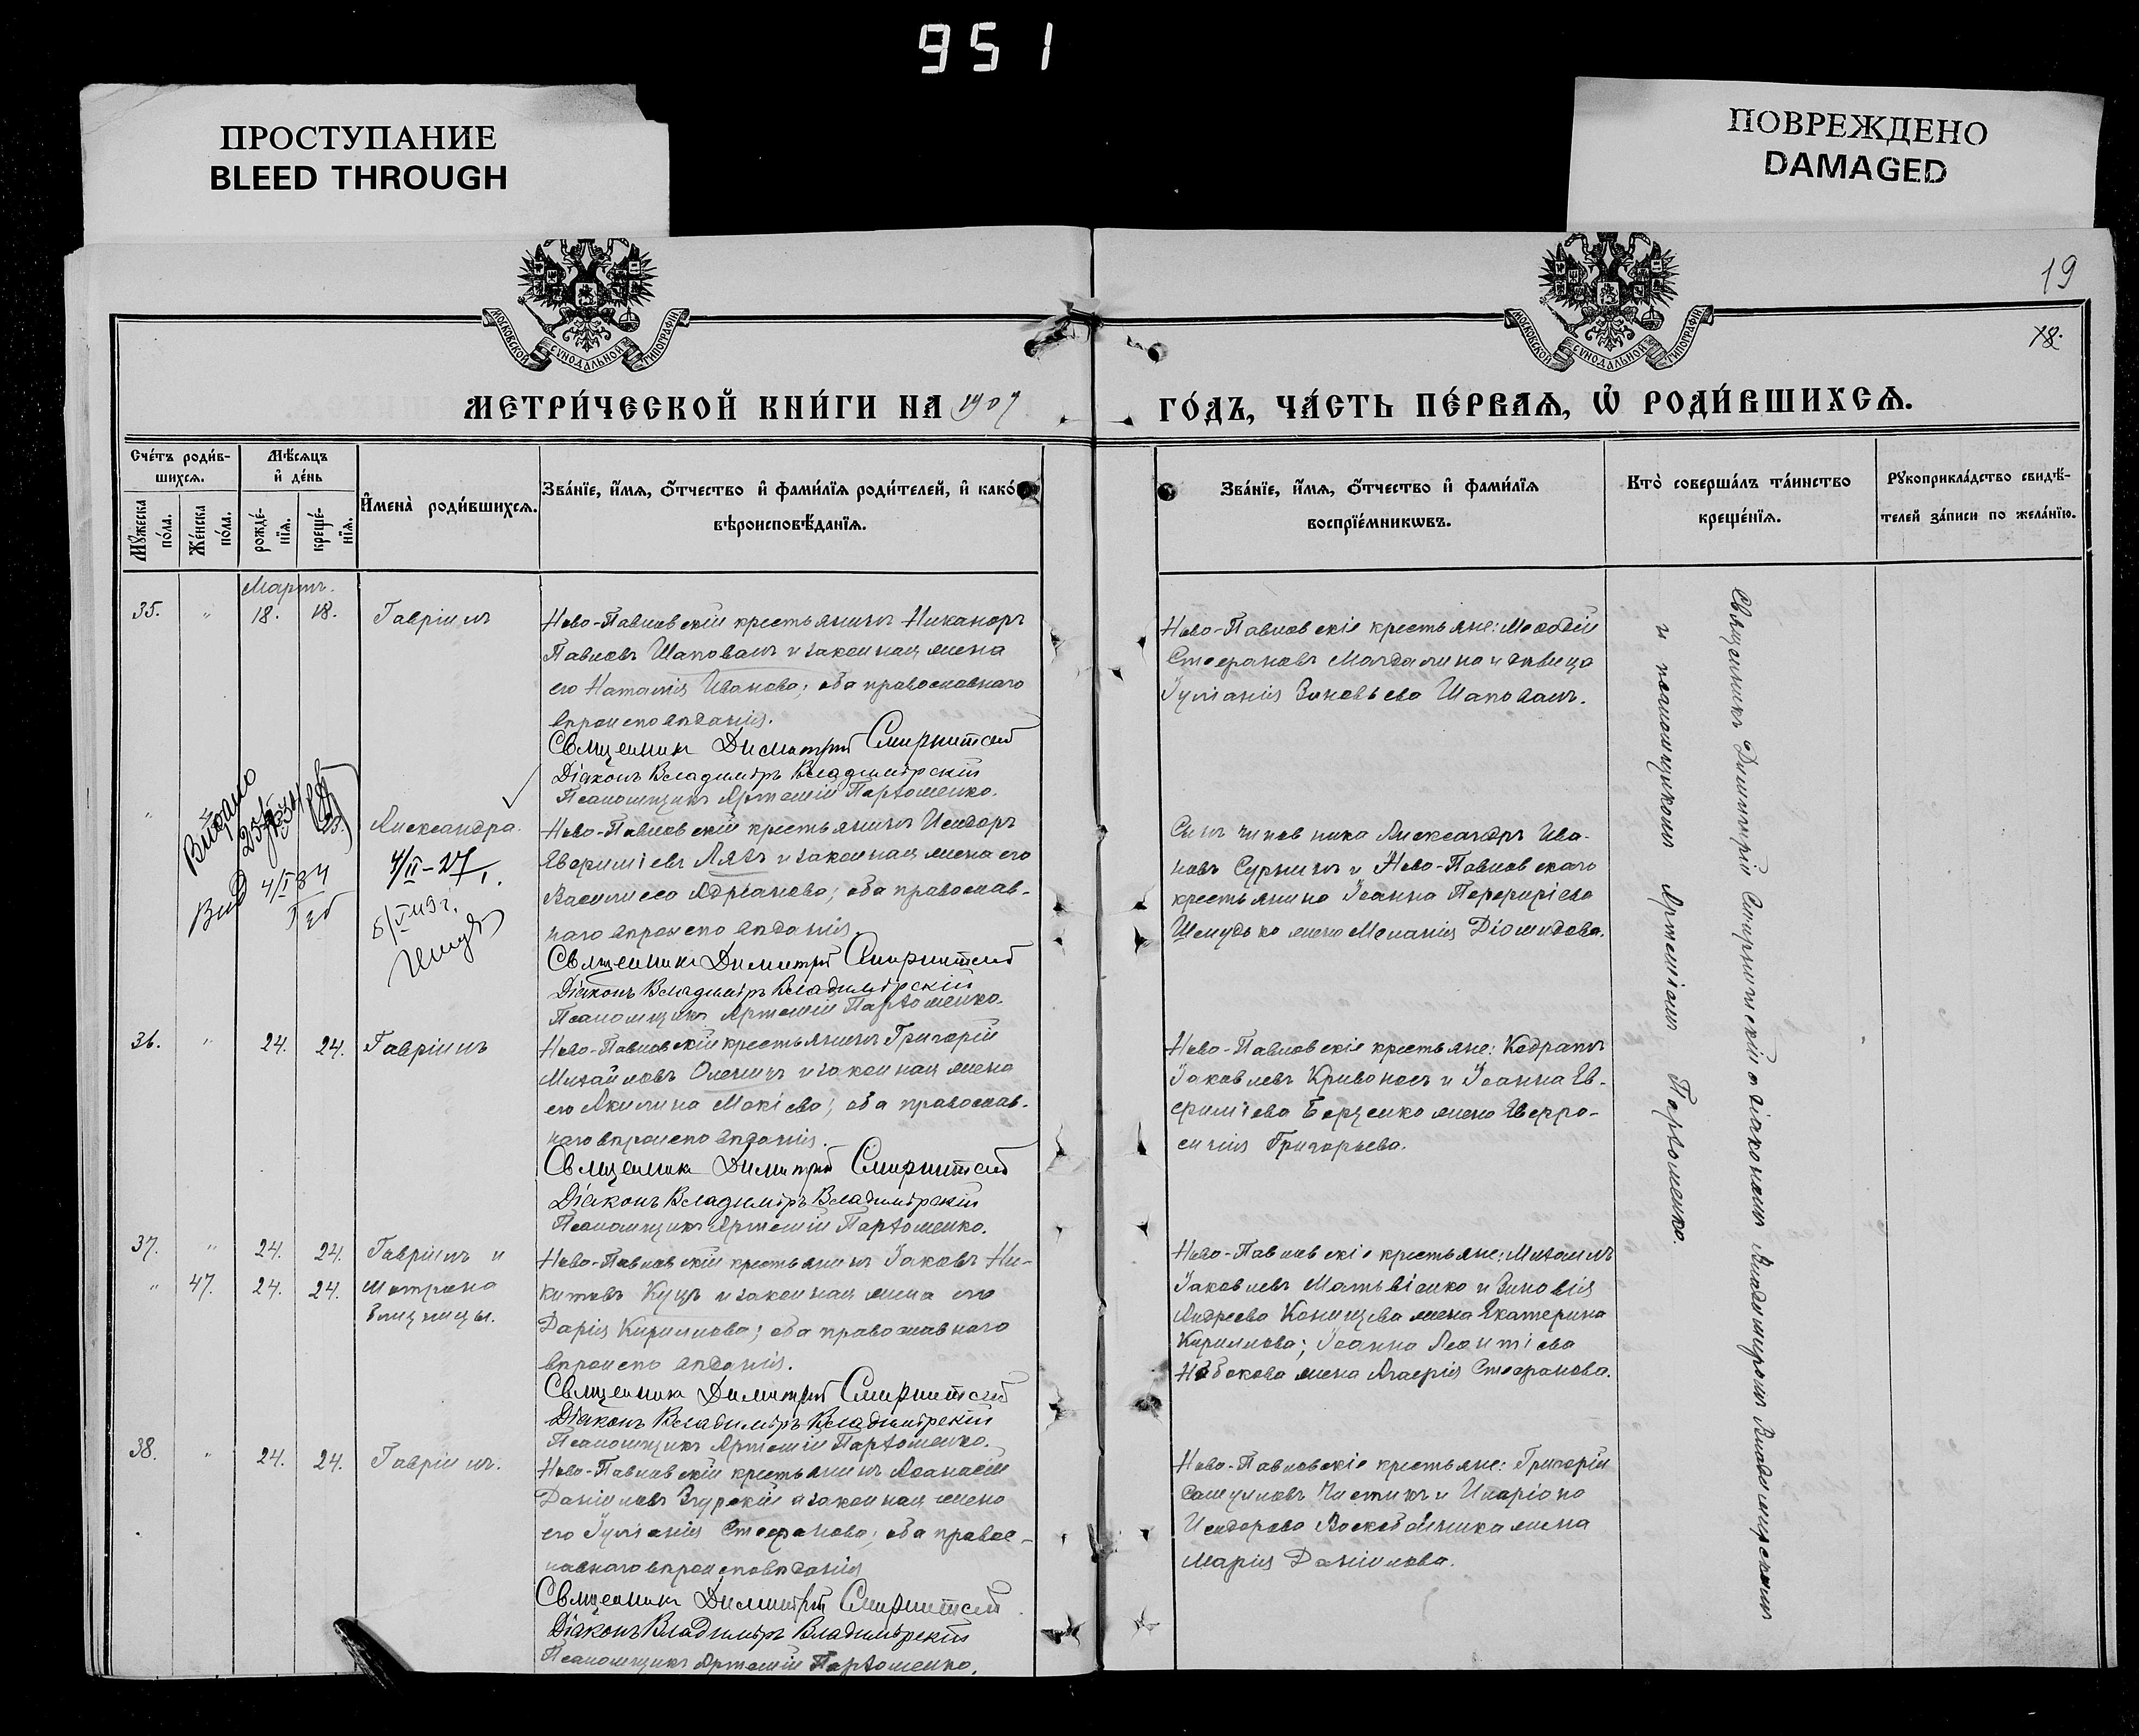 951
ПРОСТУПАНИЕ
BLEED THROUGH
ПОВРЕЖДЕНО
DAMAGED
МОСКОВСКОЙ СѴНОДАЛЬНОЙ ТИПОГРАФІИ
МОСКОВСКОЙ СѴНОДАЛЬНОЙ ТИПОГРАФІИ
19
18.
МЕТРИ́ЧЕСКОЙ КНИ́ГИ НА 1909
ГО́ДЪ, ЧА́СТЬ ПЕ́РВАѦ, Ѡ҆ РОДИ́ВШИХСѦ.
Сче́тъ роди́в-
шихсѧ.
Мꙋ́жеска по́ла.
Же́нска по́ла.
Мѣ́сѧцъ
и҆ де́нь
рожде́-
нїѧ.
креще́-
нїѧ.
И҆мена̀ роди́вшихсѧ.
Зва́нїе, и҆́мѧ, ѻ҆́тчество и҆ фами́лїѧ роди́телей, и҆ како́
вѣроисповѣ́данїѧ.
Зва́нїе, и҆́мѧ, ѻ҆́тчество и҆ фами́лїѧ
воспрїе́мникѡвъ.
Кто̀ соверша́лъ та́инство
креще́нїѧ.
Рꙋкоприкла́дство свидѣ́-
телей за́писи по жела́нїю.
Мартъ.
35. " 18. 18. Гавріилъ
Ново-Павловскій крестьянинъ Никаноръ
Павловъ Шаповалъ и законная жена
его Наталія Иванова; оба православнаго
вѣроисповѣданія.
Священникъ Димитрій Смирнитскій
Діаконъ Владиміръ Владимірскій
Псаломщикъ Артемій Пархоменко.
Ново-Павловскіе крестьяне: Меѳодій
Стефановъ и дѣвица
Іуліанія Зиновьева Шаповалъ.
" Александра.
Ново-Павловскій крестьянинъ Исидоръ
Евфиміевъ Ляхъ и законная жена его
Василисса Адріанова; оба православ-
наго вѣроисповѣданія.
Священникъ Димитрій Смирнитскій
Діаконъ Владиміръ Владимірскій
Псаломщикъ Артемій Пархоменко.
Сынъ чиновника Александръ Ива-
новъ и Ново-Павловскаго
крестьянина Іоанна Порфиріева
жена Меланія Діомидова.
36. " 24. 24. Гавріилъ
Ново-Павловскій крестьянинъ Григорій
Михайловъ и законная жена
его Акилина Мокіева; оба православ-
наго вѣроисповѣданія.
Священникъ Димитрій Смирнитскій
Діаконъ Владиміръ Владимірскій
Псаломщикъ Артемій Пархоменко.
Ново-Павловскіе крестьяне: Кодратъ
Іаковлевъ Кривоносъ и Іоанна Ев-
фиміева жена Евфро-
синія Григорьева.
37. " 24. 24. Гавріилъ и
" 47. 24. 24. Матрона
близнецы.
Ново-Павловскій крестьянинъ Іаковъ Ни-
китовъ Куцъ и законная жена его
Дарія Кириллова; оба православнаго
вѣроисповѣданія.
Священникъ Димитрій Смирнитскій
Діаконъ Владиміръ Владимірскій
Псаломщикъ Артемій Пархоменко.
Ново-Павловскіе крестьяне: Михаилъ
Іаковлевъ Матвіенко и Зиновія
Андреева жена Екатерина
Кириллова; Іоанна Леонтіева
Набокова жена Агафія Стефанова.
38. " 24. 24. Гавріилъ.
Ново-Павловскій крестьянинъ Аѳанасій
Даніиловъ Згурскій и законная жена
его Іуліанія Стефанова; оба правос-
лавнаго вѣроисповѣданія
Священникъ Димитрій Смирнитскій
Діаконъ Владиміръ Владимірскій
Псаломщикъ Артемій Пархоменко.
Ново-Павловскіе крестьяне: Григорій
Самуиловъ Чистикъ и Иларіона
Исидорова Воскобойника жена
Марія Даніилова.
Священникъ Димитрій Смирнитскій съ діакономъ Владиміромъ Владимірскимъ
и псаломщикомъ Артеміемъ Пархоменко.